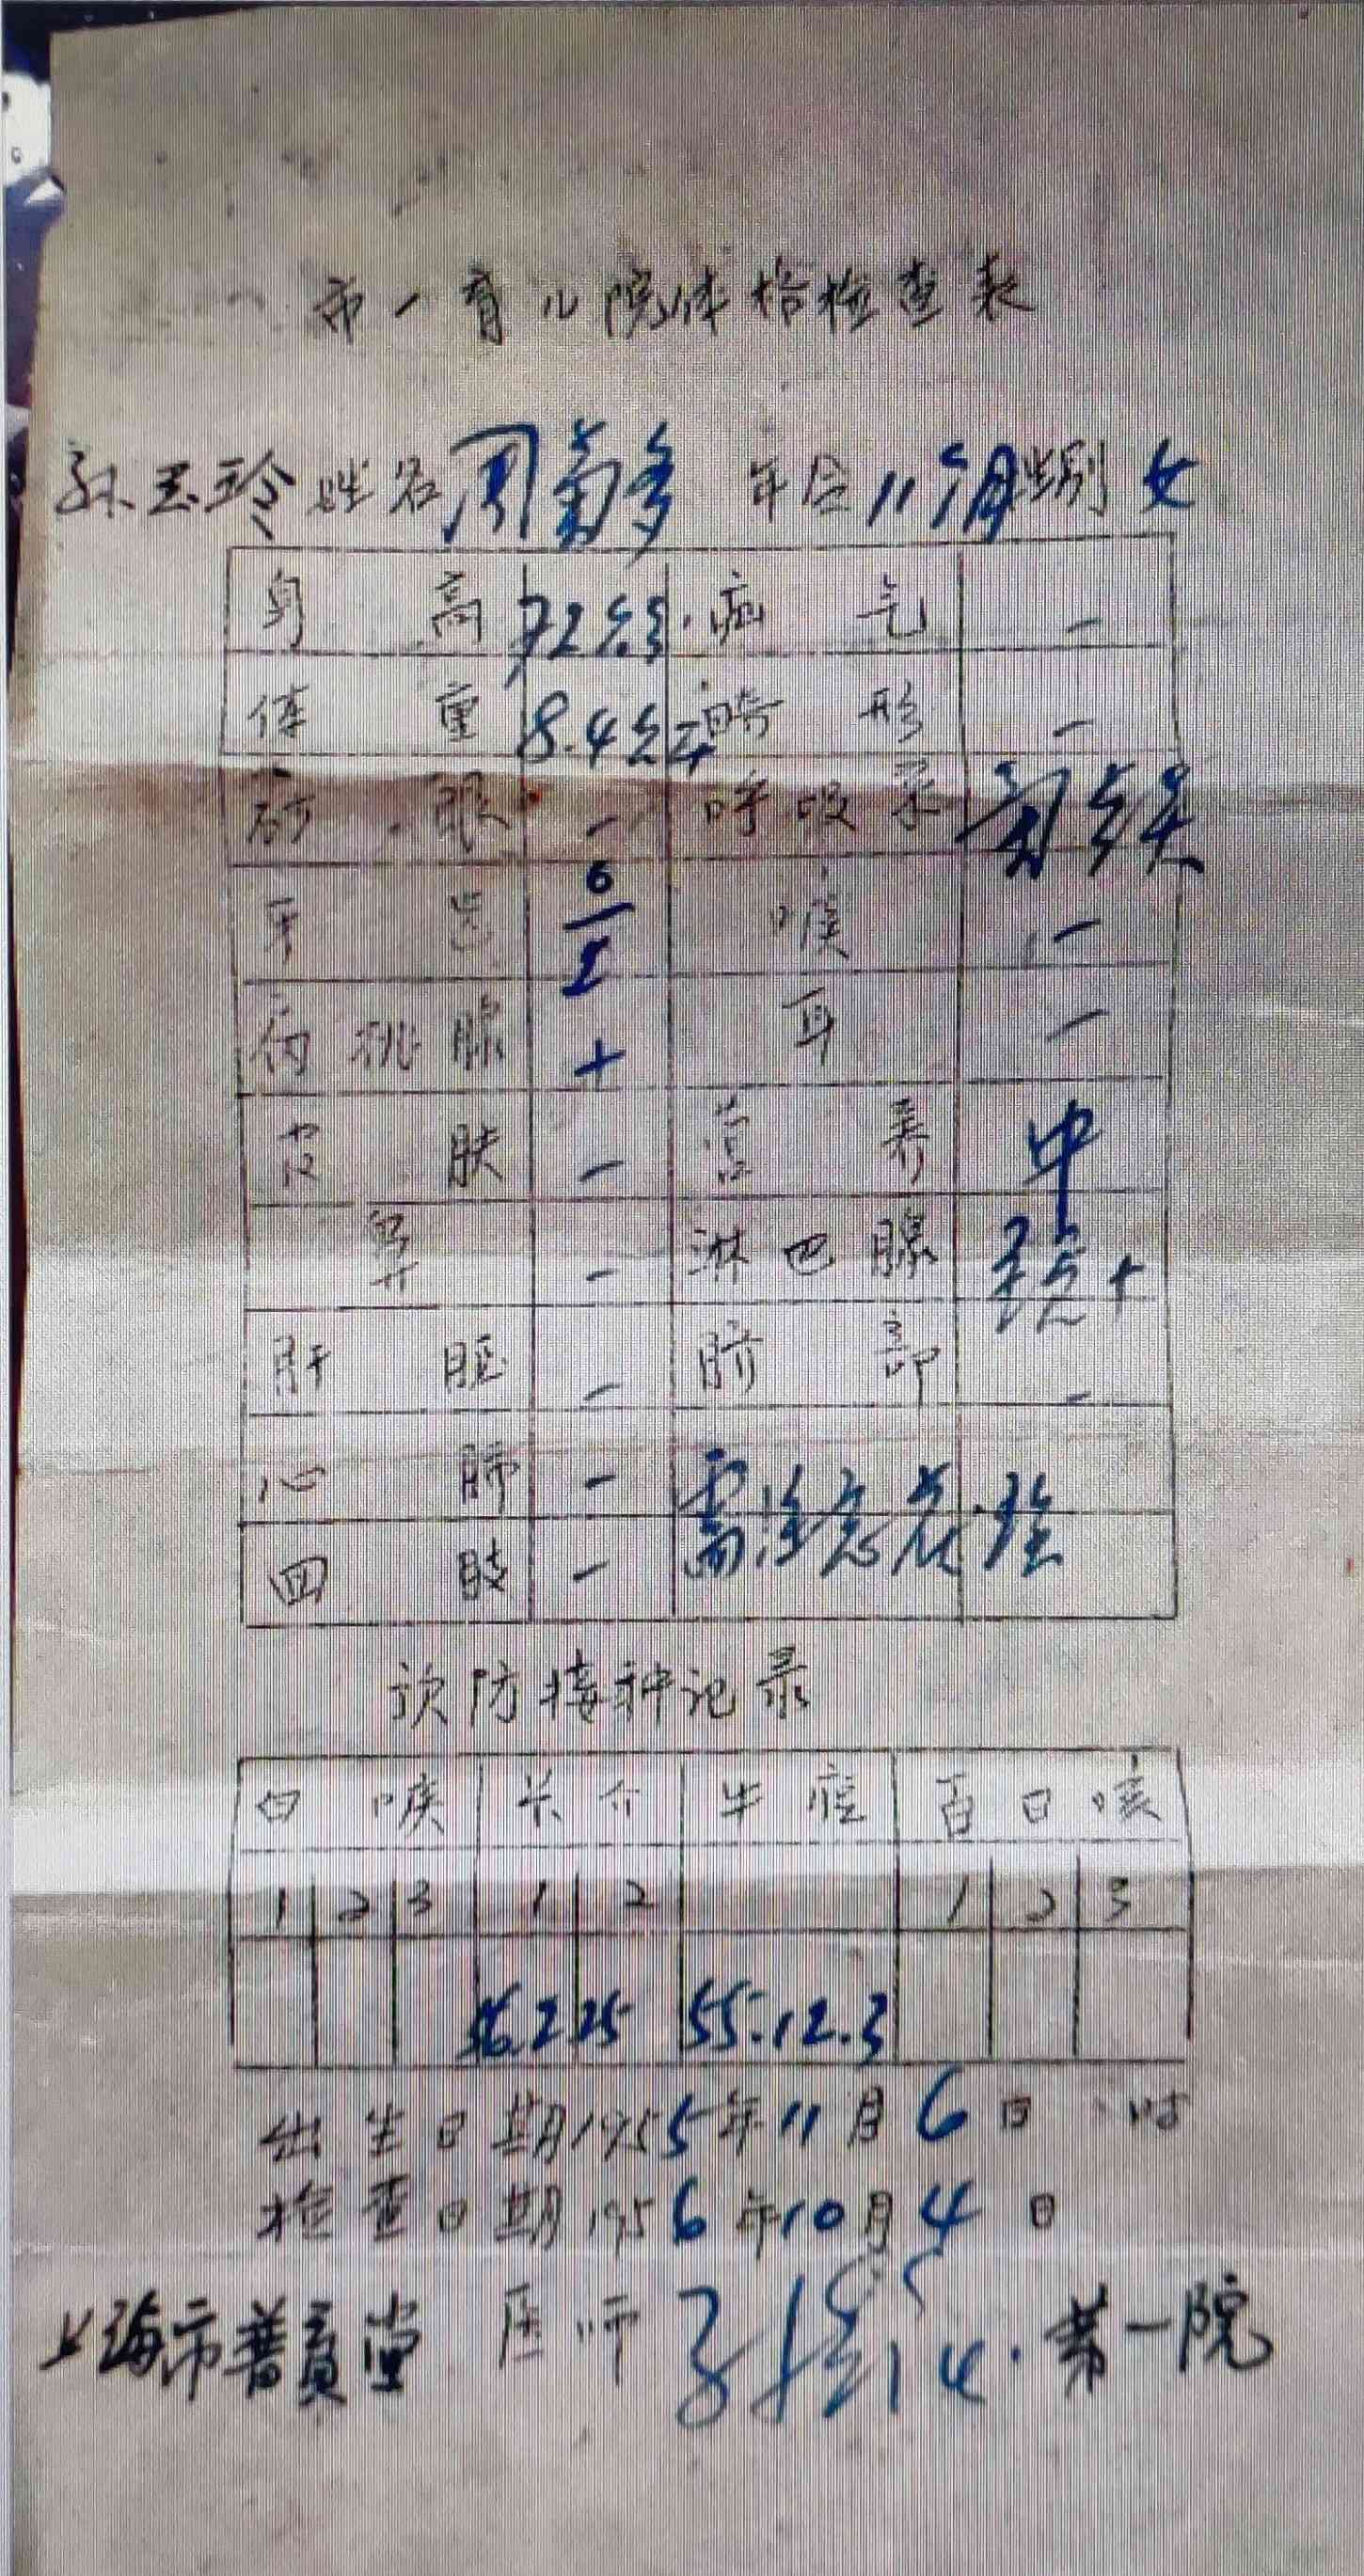 市一育儿院体格检查表
孙玉玲 姓名 周菊 年令 11个月 性别 女
身高 72 疝气 —
体重 8.4 畸形 —
砂眼 — 呼吸系
牙齿 6/2 喉 —
扁桃腺 + 耳 —
皮肤 — 营养 中
鼻 — 淋巴腺 +
肝脏 — 脐部 —
心肺 —
四肢 —
预防接种记录
白喉 卡介 牛痘 百日咳
1 2 3 1 2 1 2 3
56.2.25 55.12.3
出生日期1955年11月6日 时
检查日期1956年10月4日
上海市普育堂 医师 第一院